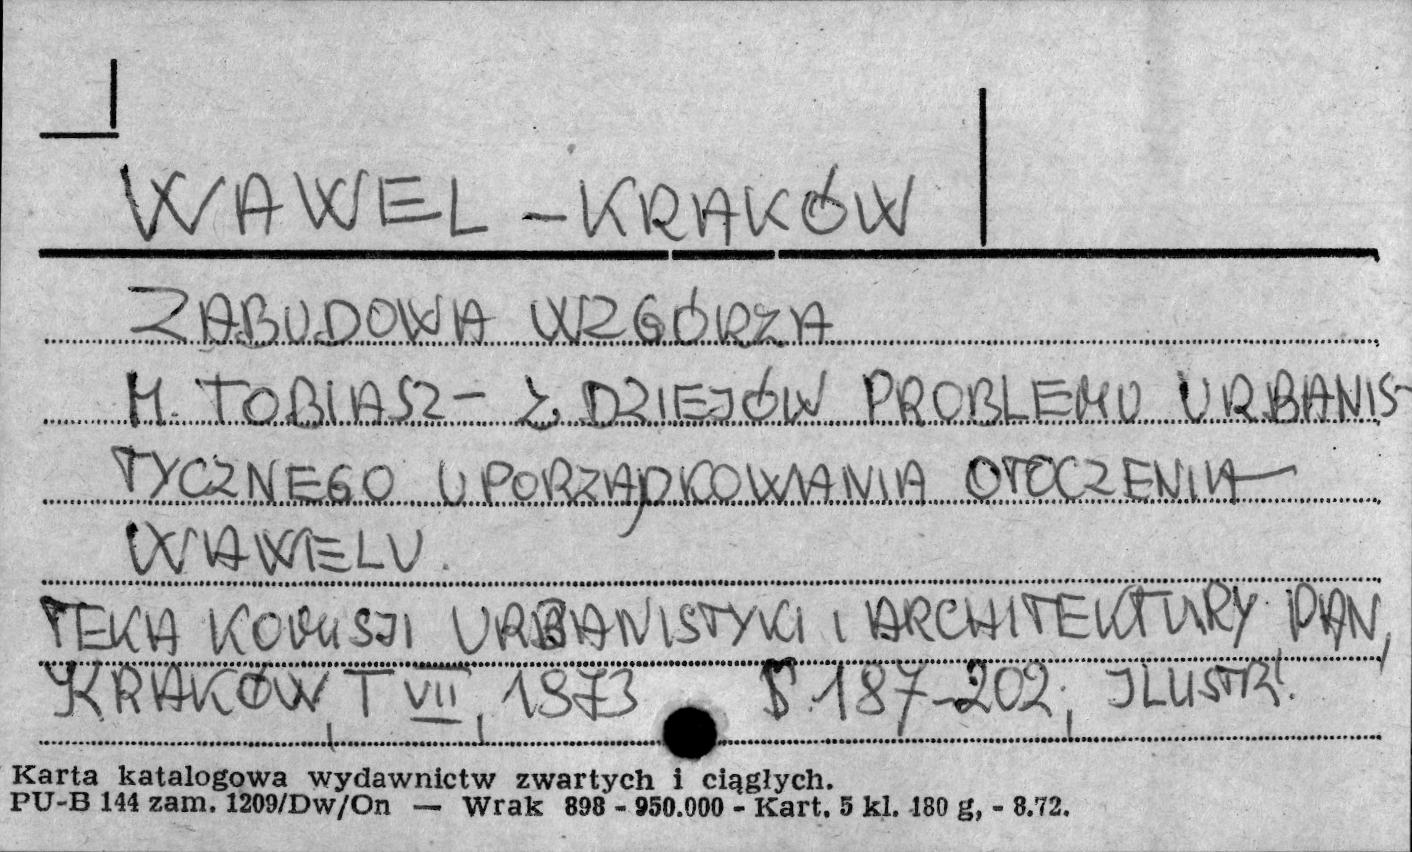 WAWEL - KRAKÓW
ZABUDOWA WZGÓRZA
M. TOBIASZ - Z DZIEJÓW PROBLEMU URBANIS-
TYCZNEGO UPORZĄDKOWANIA OTOCZENIA
WAWELU.
TEKA KOMISJI URBANISTYKI I ARCHITEKTURY PAN,
KRAKÓW, T VII, 1973 S. 187-202, ILUSTR.
Karta katalogowa wydawnictw zwartych i ciągłych.
PU-B 144 zam. 1209/Dw/On — Wrak 898 - 950.000 - Kart. 5 kl. 180 g, - 8.72.